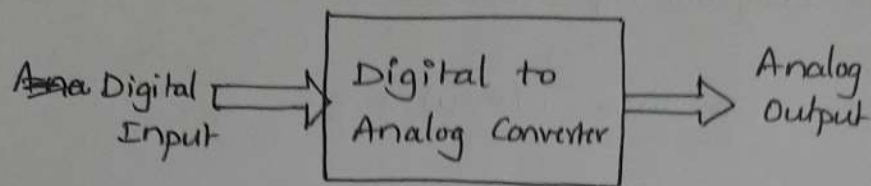 Digital
Input
Digital to
Analog Converter
Analog
Output